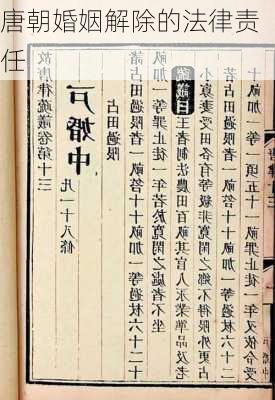 唐朝婚姻解除的法律责
任
故唐律疏議卷第十三
戶婚中 凡一十八條
占田過限
諸占田過限者一畝笞十十畝加一等過杖六十二十
畝加一等罪止徒一年若於寬閑之處者不坐
疏議曰王者制法農田百畝其官人永業準品及老
小寡妻受田各有等級非寬閑之鄉不得限外更占
若占田過限者一畝笞十十畝加一等過杖六十二
十畝加一等一頃五十一畝罪止徒一年又依令受